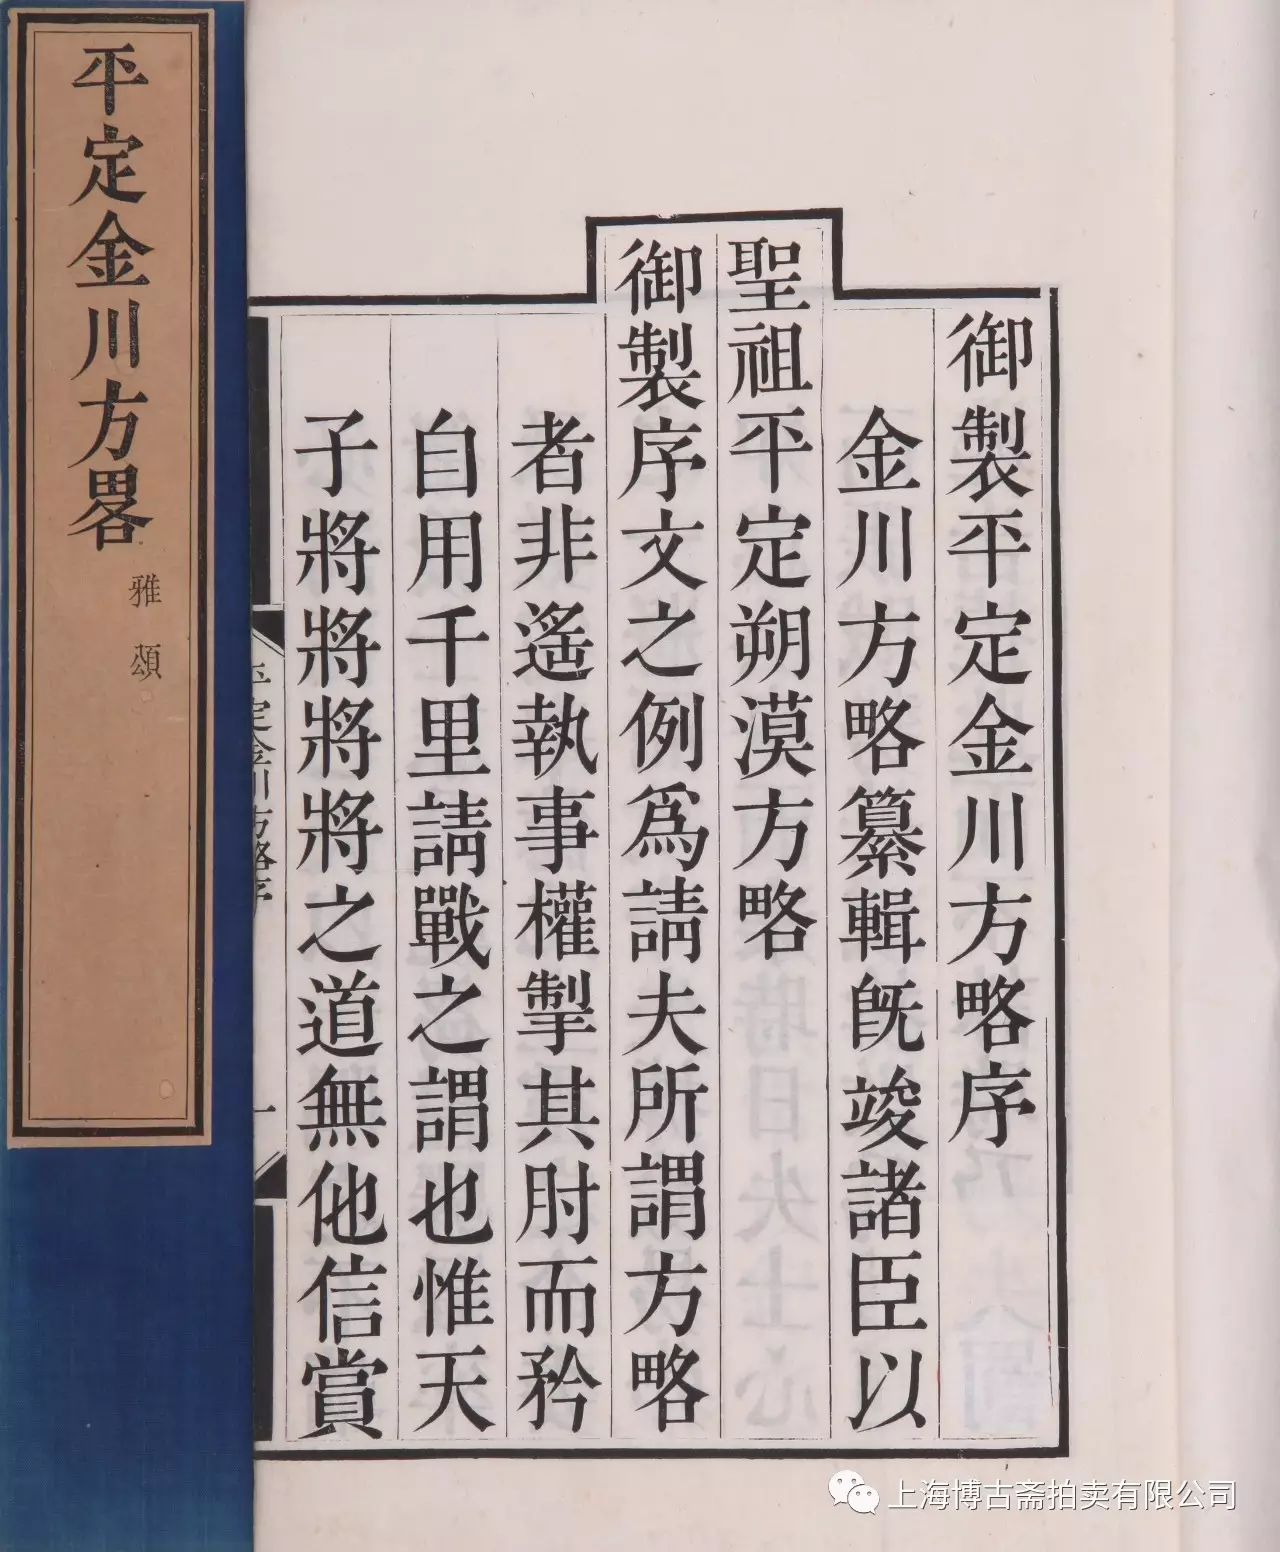 平定金川方畧
雅頌
御製平定金川方略序
金川方略纂輯旣竣諸臣以
聖祖平定朔漠方略
御製序文之例爲請夫所謂方略
者非遙執事權掣其肘而矜
自用千里請戰之謂也惟天
子將將將將之道無他信賞
平定金川方略序
一
上海博古斋拍卖有限公司